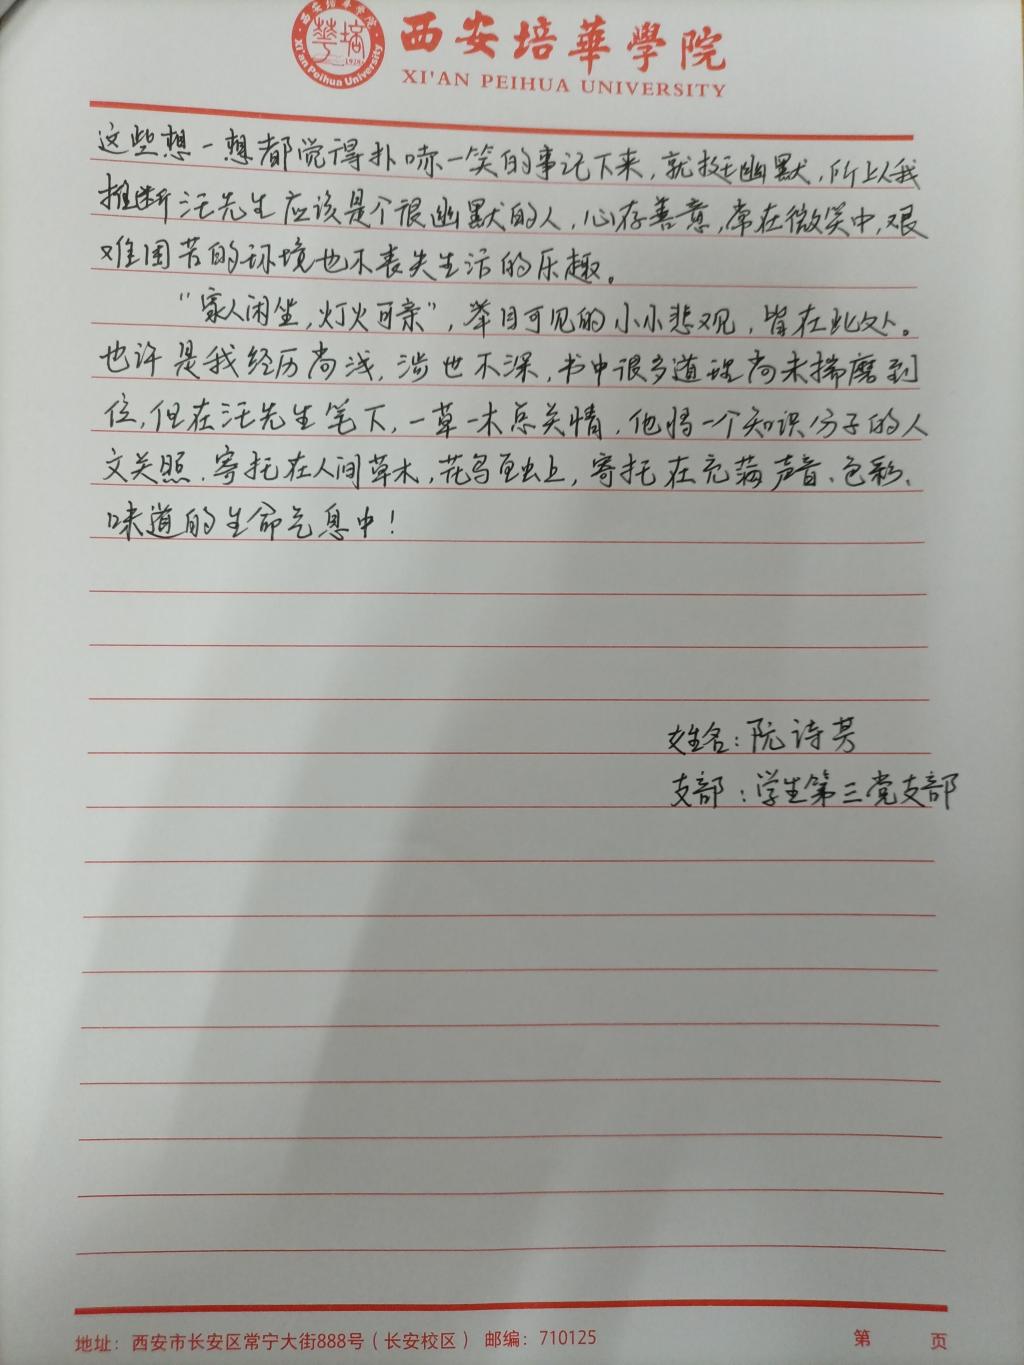 西安培華學院
XI'AN PEIHUA UNIVERSITY
Xi'an Peihua University
1928
这些想一想都觉得扑哧一笑的事记下来，就挺幽默，所以我
推断汪先生应该是个很幽默的人，心存善意，常在微笑中，艰
难困苦的环境也不丧失生活的乐趣。
“家人闲坐，灯火可亲”，举目可见的小小悲观，皆在此处。
也许是我经历尚浅，涉世不深，书中很多道理尚未揣磨到
位，但在汪先生笔下，一草一木总关情，他将一个知识分子的人
文关照，寄托在人间草木，花鸟鱼虫上，寄托在充满声音、色彩、
味道的生命气息中！
姓名：阮诗芳
支部：学生第三党支部
地址：西安市长安区常宁大街888号（长安校区） 邮编：710125
第 页